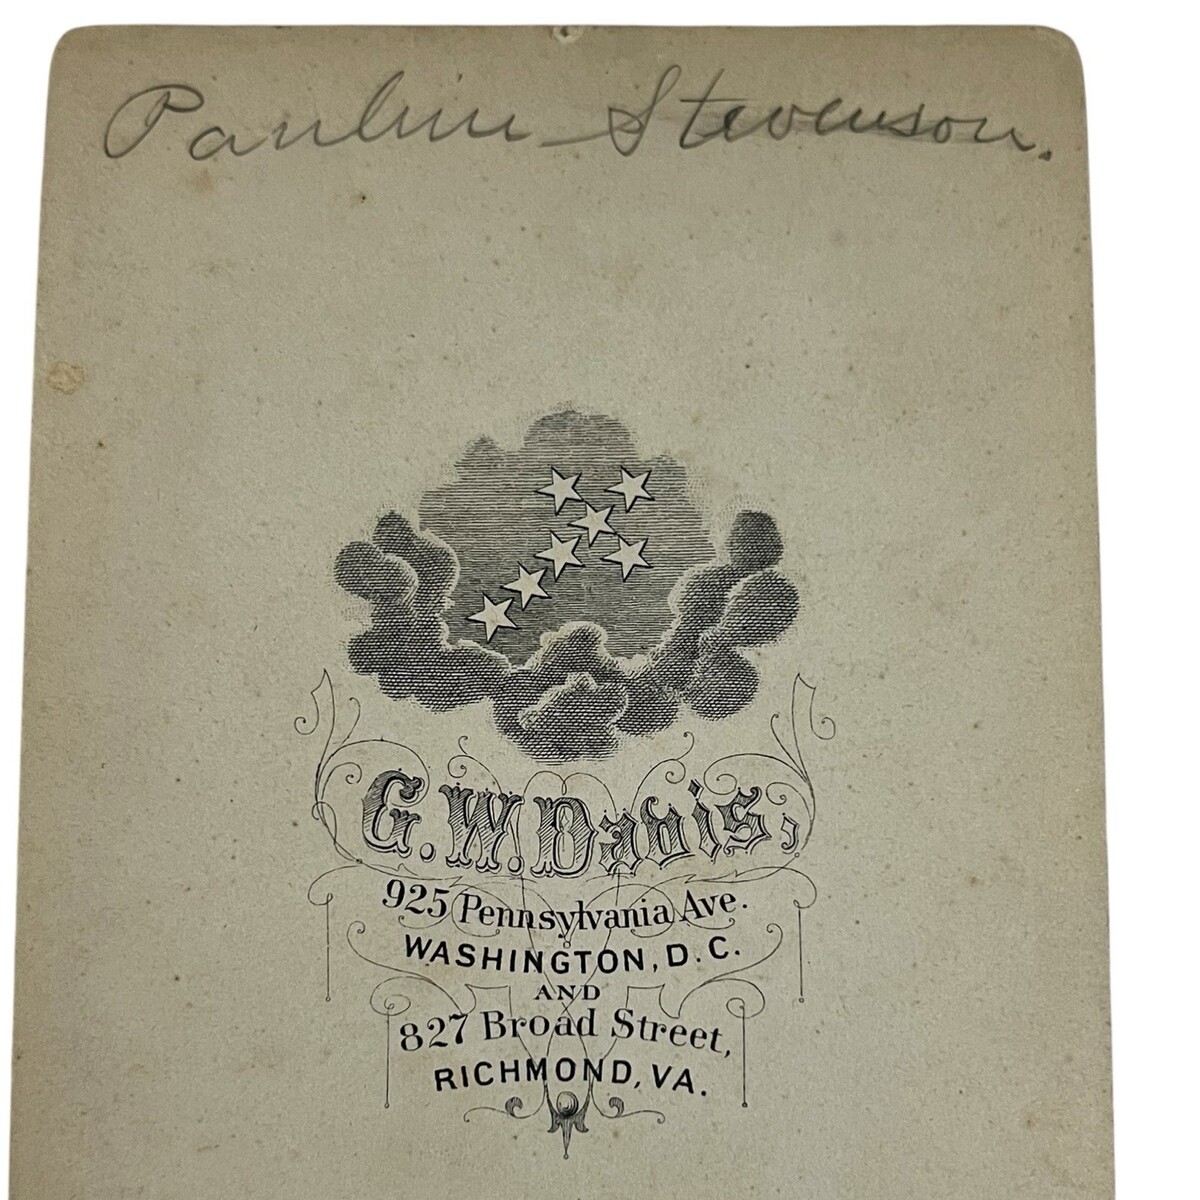 Pauline Stevenson.
G. W. Davis,
925 Pennsylvania Ave.
WASHINGTON, D. C.
AND
827 Broad Street,
RICHMOND, VA.